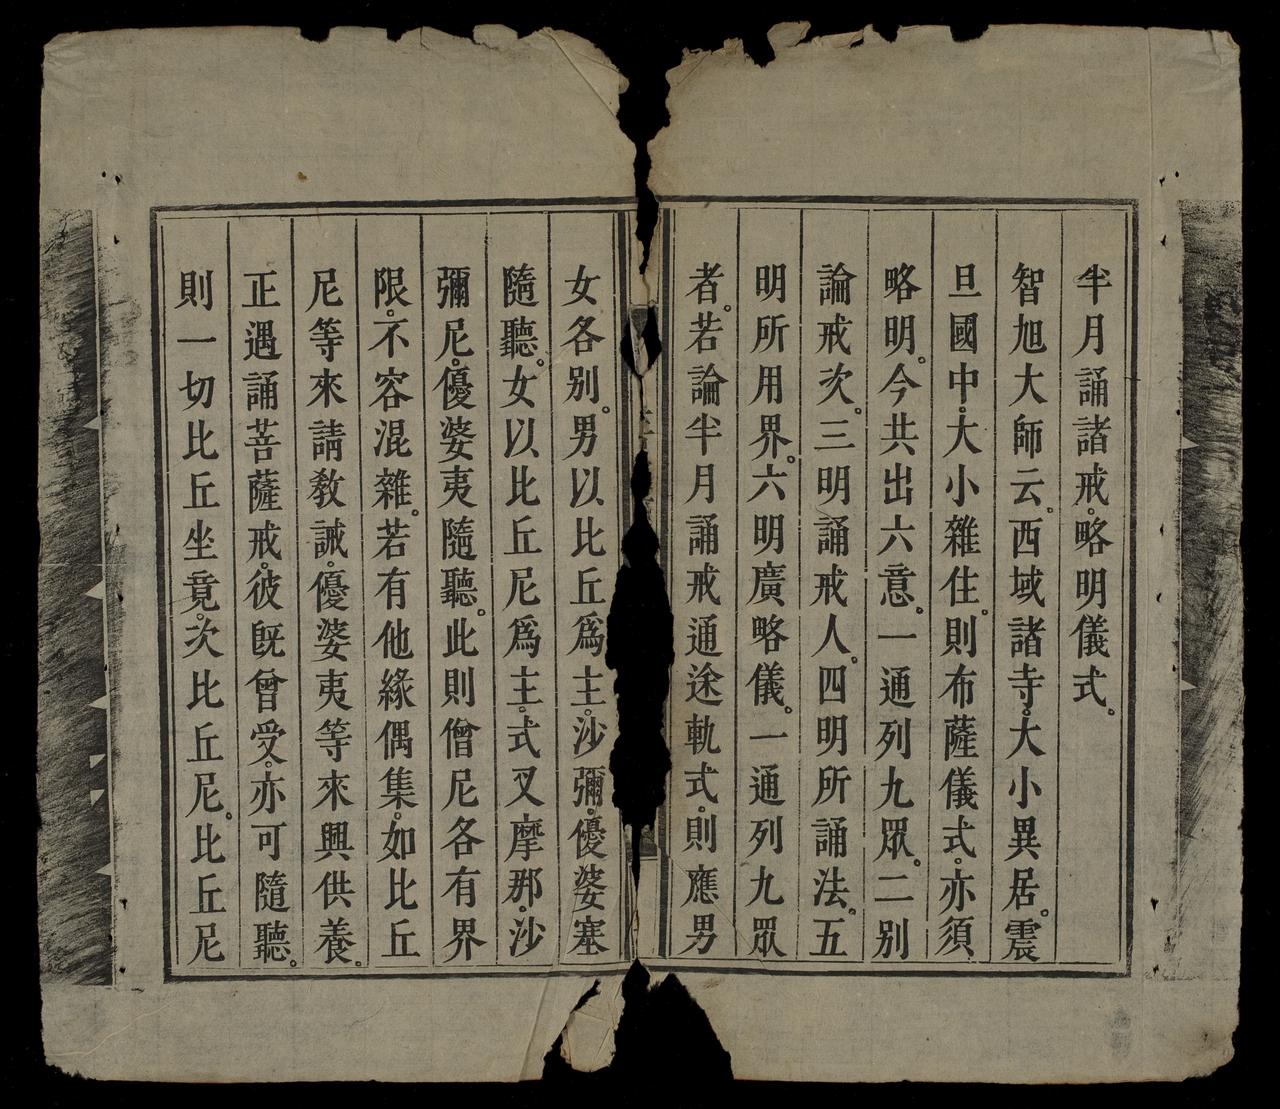 半月誦諸戒。略明儀式。
智旭大師云。西域諸寺。大小異居。震
旦國中。大小雜住。則布薩儀式。亦須
略明。今共出六意。一通列九眾。二別
論戒次。三明誦戒人。四明所誦法。五
明所用界。六明廣略儀。一通列九眾
者。若論半月誦戒通途軌式。則應男
女各別。男以比丘爲主。沙彌。優婆塞
隨聽。女以比丘尼爲主。式叉摩那。沙
彌尼。優婆夷隨聽。此則僧尼各有界
限。不容混雜。若有他緣偶集。如比丘
尼等來請教誡。優婆夷等來興供養。
正遇誦菩薩戒。彼既曾受。亦可隨聽。
則一切比丘坐竟。次比丘尼。比丘尼